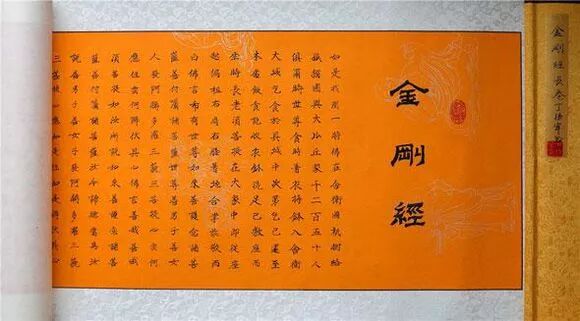 金剛經
如是我聞一時佛在舍衛國祇樹給
孤獨園與大比丘眾千二百五十人
俱爾時世尊食時著衣持鉢入舍衛
大城乞食於其城中次第乞已還至
本處飯食訖收衣鉢洗足已敷座而
坐時長老須菩提在大眾中即從座
起偏袒右肩右膝著地合掌恭敬而
白佛言希有世尊如來善護念諸菩
薩善付囑諸菩薩世尊善男子善女
人發阿耨多羅三藐三菩提心云何
應住云何降伏其心佛言善哉善哉
須菩提如汝所說如來善護念諸菩
薩善付囑諸菩薩汝今諦聽當為汝
說善男子善女人發阿耨多羅三藐
三菩提心應如是住如是降伏其心
金剛經長卷